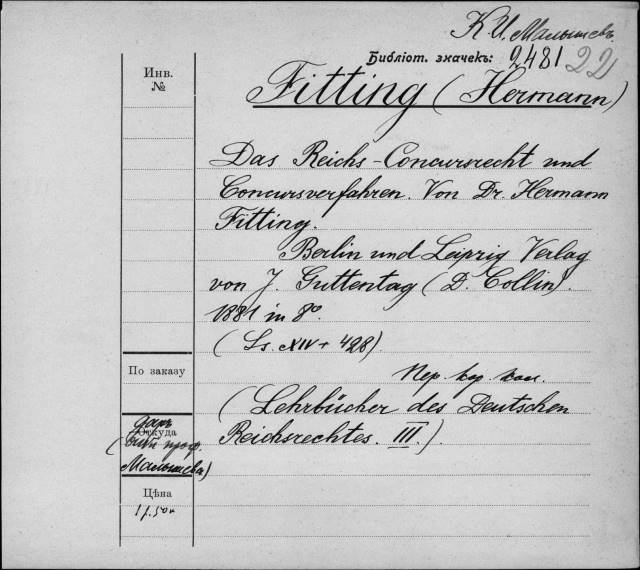 К. И. Малышевъ.
Библіот. значекъ: 2481 22
Инв.
№
Fitting (Hermann)
Das Reichs-Concursrecht und
Concursverfahren. Von Dr. Hermann
Fitting.
Berlin und Leipzig Verlag
von J. Guttentag (D. Collin).
1881 in 8°.
(Ss. XIV + 428).
По заказу
Пер. кор. кол.
(Lehrbücher des Deutschen
Reichsrechtes. III.).
даръ
Откуда
проф.
Малышева)
Цѣна